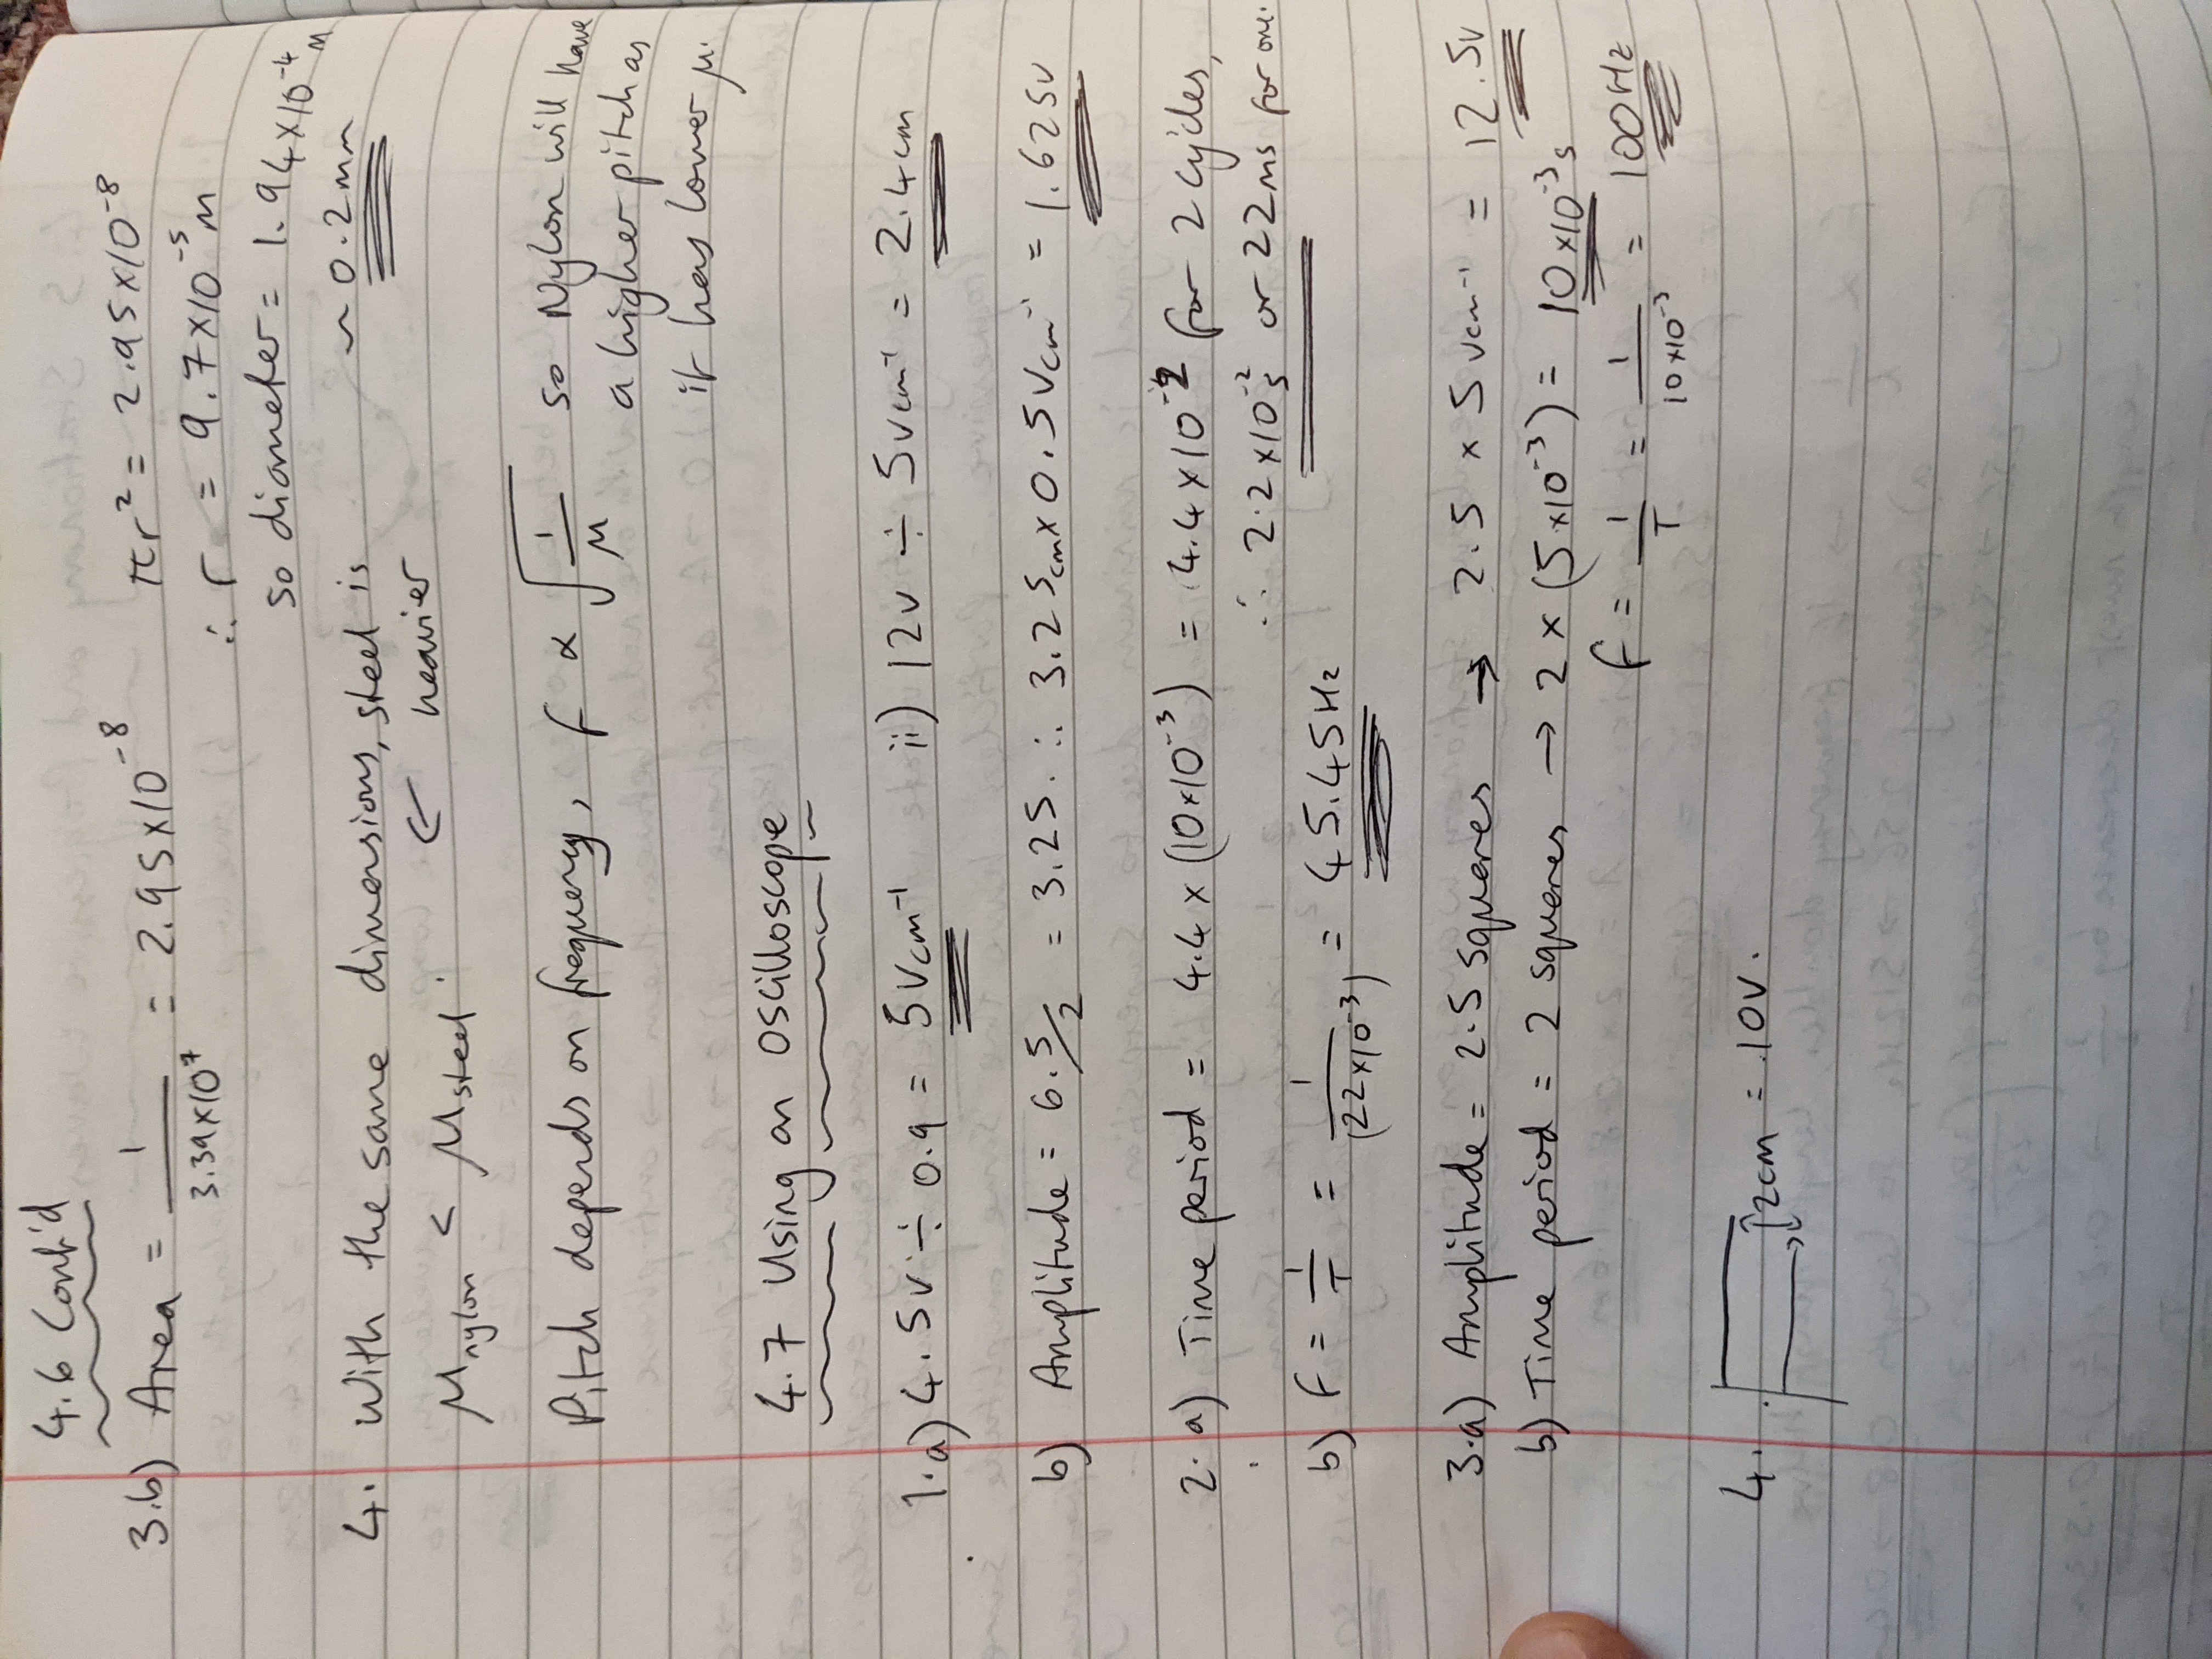 4.6 Cont'd
3.b) Area = 1/3.39×10⁷ = 2.95×10⁻⁸ πr² = 2.95×10⁻⁸
∴ r = 9.7×10⁻⁵m
so diameter = 1.94×10⁻⁴m
~ 0.2mm
4. With the same dimensions, steel is
← heavier
μnylon < μsteel.
Pitch depends on frequency, f ∝ √(1/μ) so Nylon will have
a higher pitch as
it has lower μ.
4.7 Using an oscilloscope
1.a) 4.5v ÷ 0.9 = 5Vcm⁻¹ ii) 12v ÷ 5vcm⁻¹ = 2.4cm
b) Amplitude = 6.5/2 = 3.25. ∴ 3.25cm × 0.5Vcm⁻¹ = 1.625v
2. a) Time period = 4.4 × (10×10⁻³) = 4.4×10⁻² for 2 cycles,
∴ 2.2×10⁻²s or 22ms for one.
b) f = 1/T = 1/(22×10⁻³) = 45.45Hz
3.a) Amplitude = 2.5 squares → 2.5 × 5vcm⁻¹ = 12.5v
b) Time period = 2 squares → 2 × (5×10⁻³) = 10×10⁻³s
f = 1/T = 1/10×10⁻³ = 100Hz
4. 2cm = 10V.